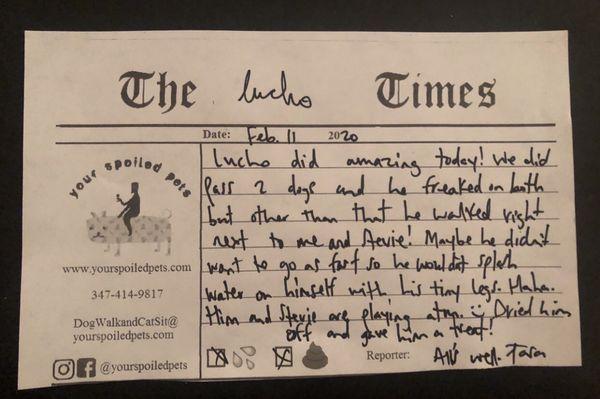 The Lucho Times
Date: Feb. 11 2020
your spoiled pets
www.yourspoiledpets.com
347-414-9817
DogWalkandCatSit@
yourspoiledpets.com
@yourspoiledpets
Lucho did amazing today! We did
pass 2 dogs and he freaked on both
but other than that he walked right
next to me and Stevie! Maybe he didn't
want to go as fast so he wouldn't splash
water on himself with his tiny legs. Haha.
Him and Stevie are playing atm. Dried him
off and gave him a treat!
Reporter: All's well. Tara